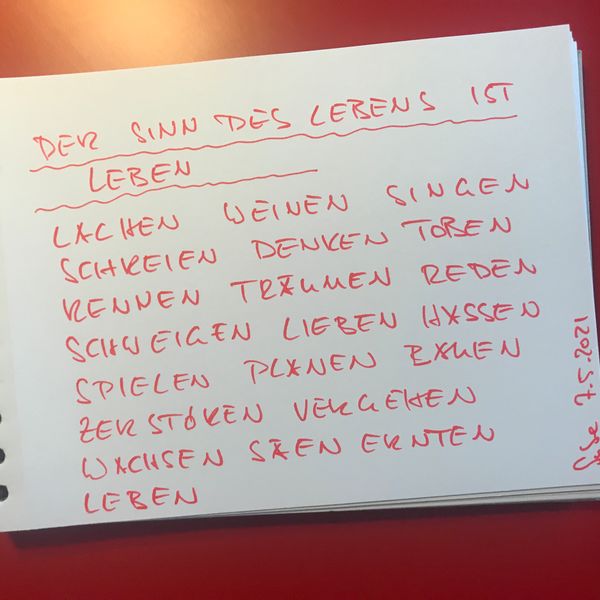 DER SINN DES LEBENS IST
LEBEN
LACHEN WEINEN SINGEN
SCHREIEN DENKEN TOBEN
RENNEN TRÄUMEN REDEN
SCHWEIGEN LIEBEN HASSEN
SPIELEN PLANEN BAUEN
ZERSTÖREN VERGEHEN
WACHSEN SÄEN ERNTEN
LEBEN
7.5.2021